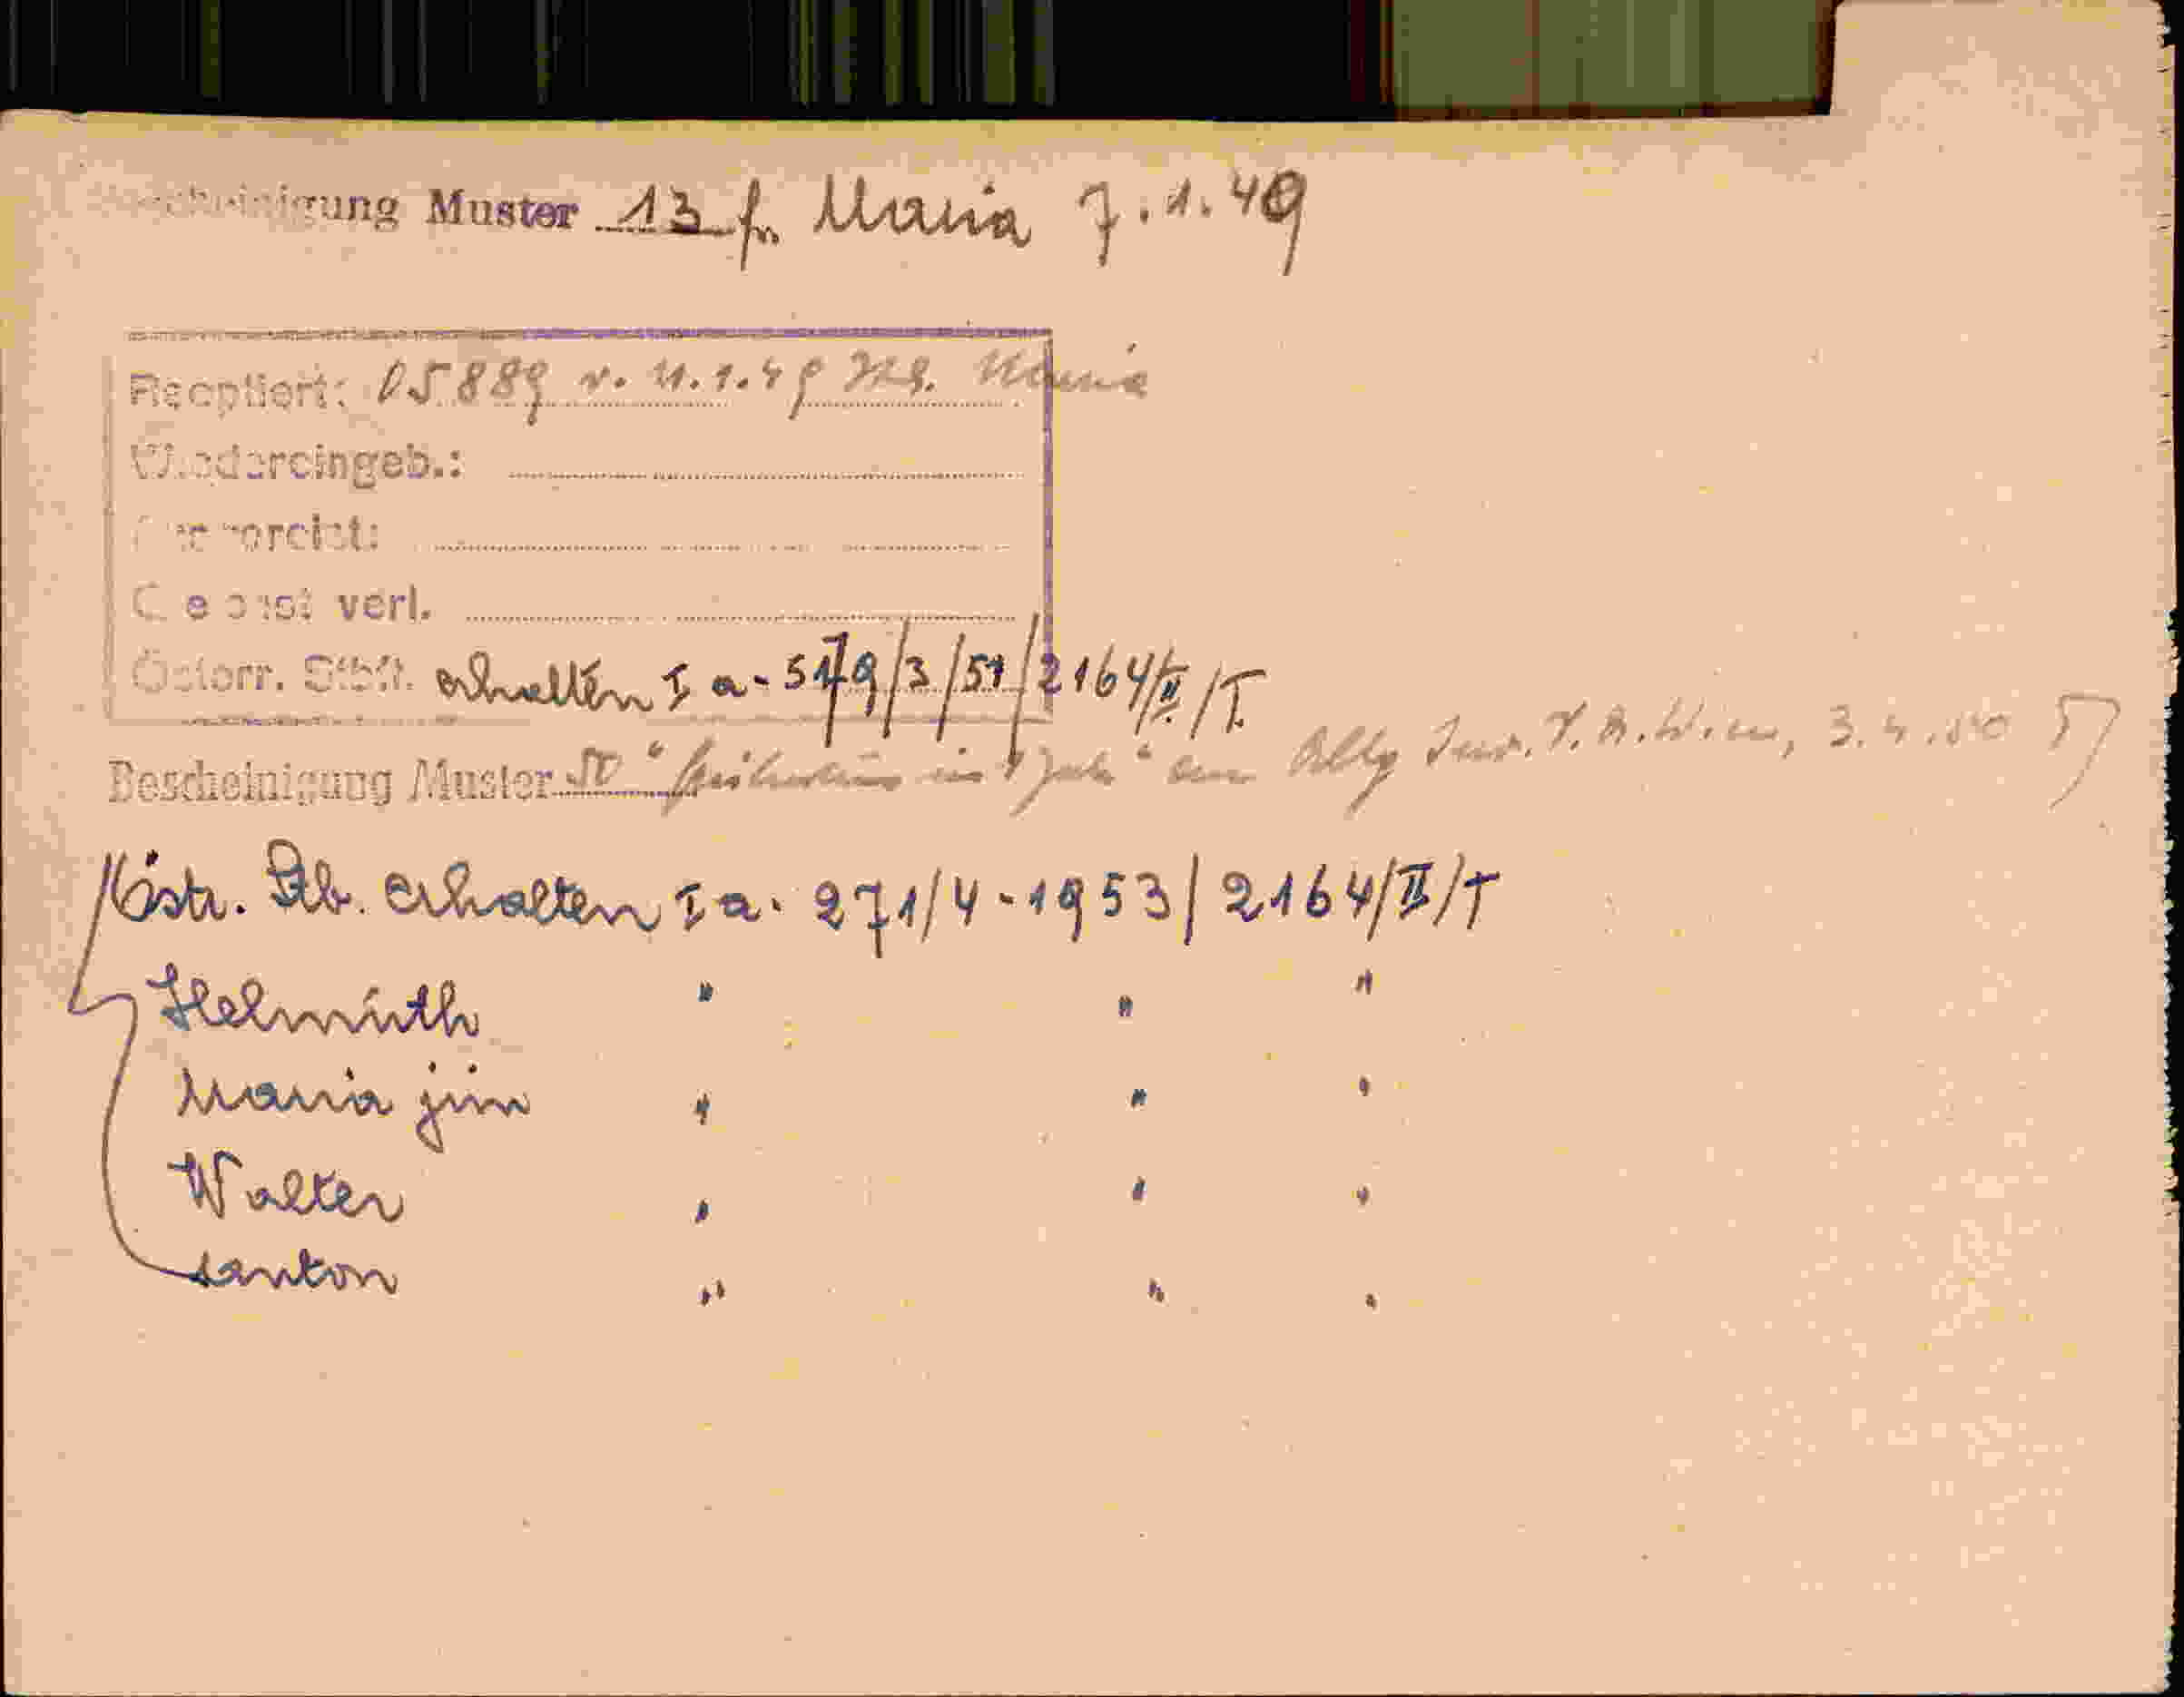 Bescheinigung Muster 13 f. Maria 7.1.49
Reoptiert: 05889 v. 11.1.49 Maria
Wiedereingeb.:
verl.
Österr. Stbft. erhalten I a - 5179/3/51/2164/II/T.
Bescheinigung Muster 50 " im Jah " an Allg Wien, 3.4.50
Östr. Stb. erhalten I a. 271/4-1953/2164/II/T
Helmuth " " "
Maria jun " " "
Walter " " "
Anton " " "